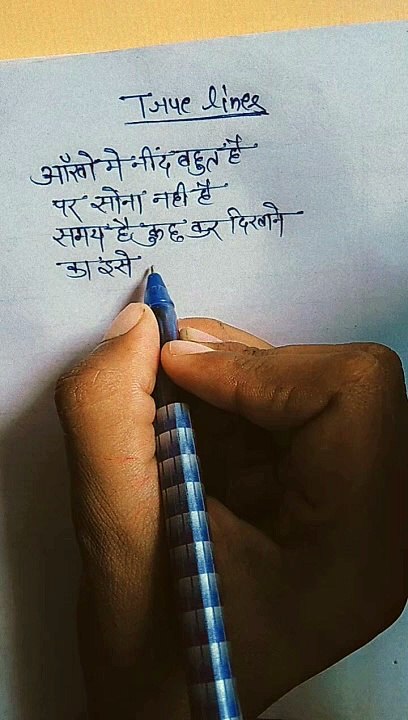 True lines
आँखो मे नींद बहुत है
पर सोना नही है
समय है, कुछ कर दिखाने
का इसे